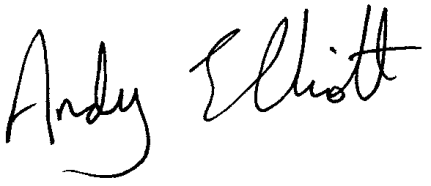 Andy Elliott